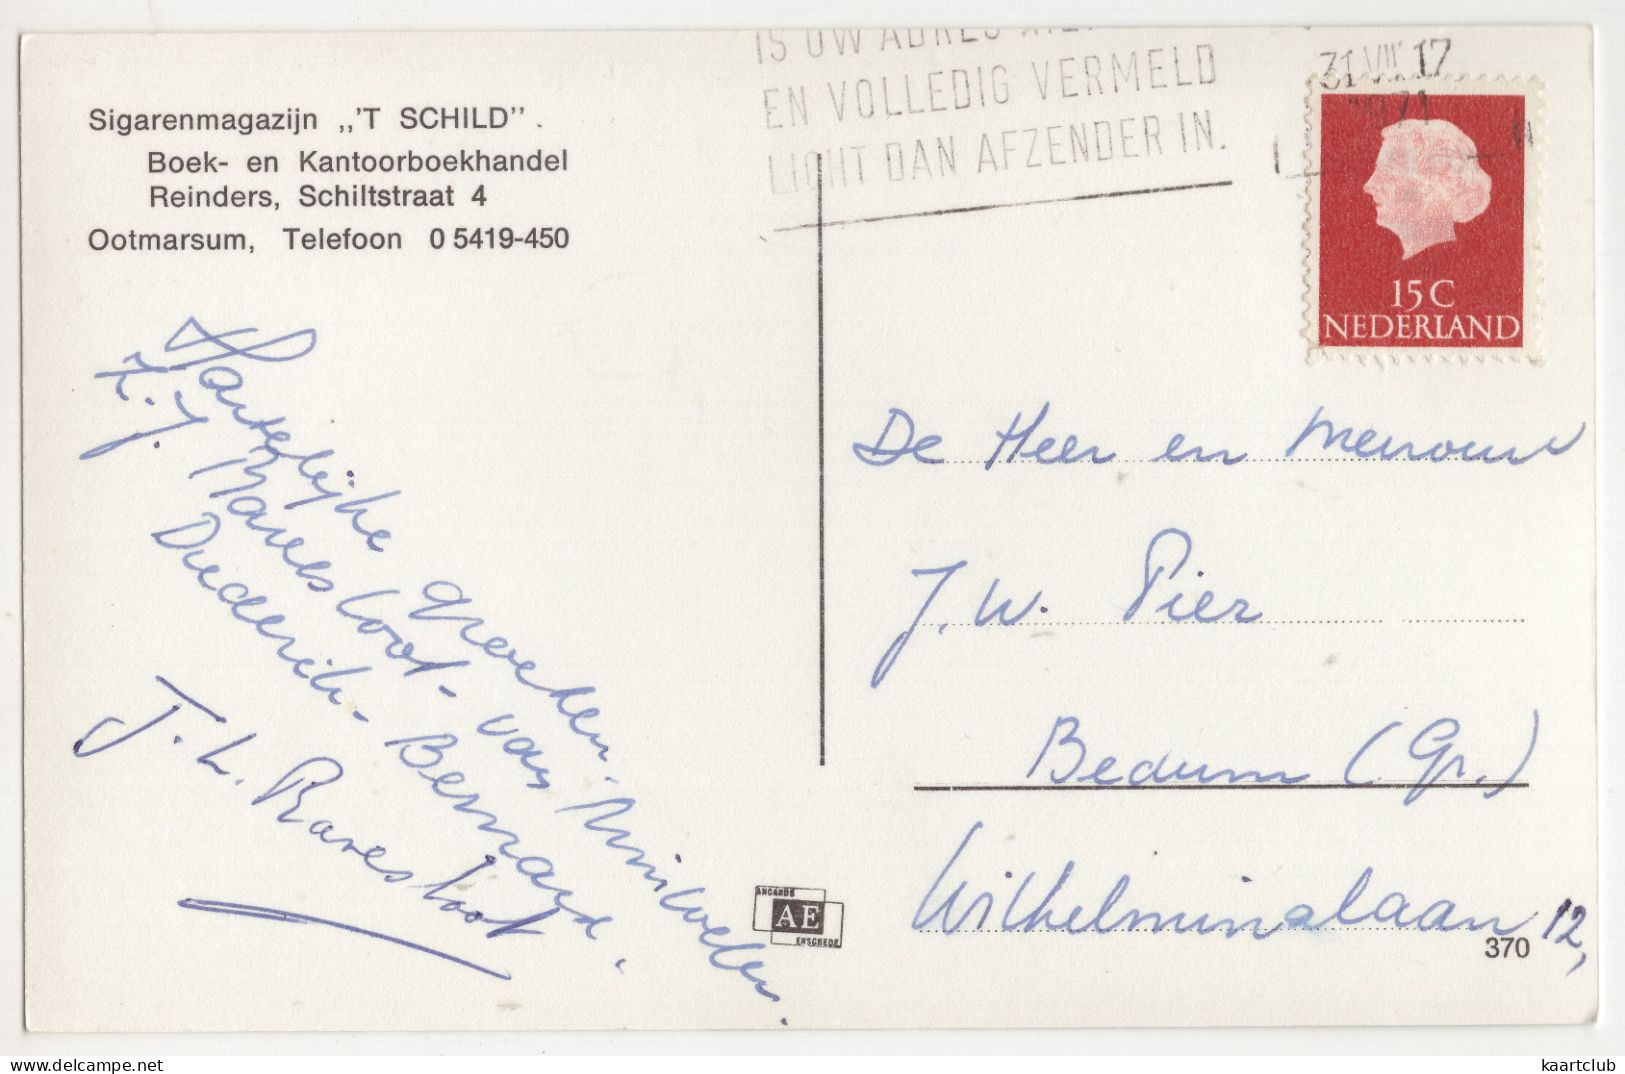 Sigarenmagazijn „'T SCHILD”.
Boek- en Kantoorboekhandel
Reinders, Schiltstraat 4
Ootmarsum, Telefoon 05419-450
EN VOLLEDIG VERMELD
LICHT DAN AFZENDER IN.
IS UW ADRES
31 VIII 17
1971
15 C
NEDERLAND
Hartelijke groeten.
Z. J. Ravesloot - van
Diederich - Bernard.
J. L. Ravesloot
De Heer en Mevrouw
J. W. Pier
Bedum (Gr.)
Wilhelminalaan 12,
ANCARDE
AE
ENSCHEDE
370
kaartclub
www.delcampe.net